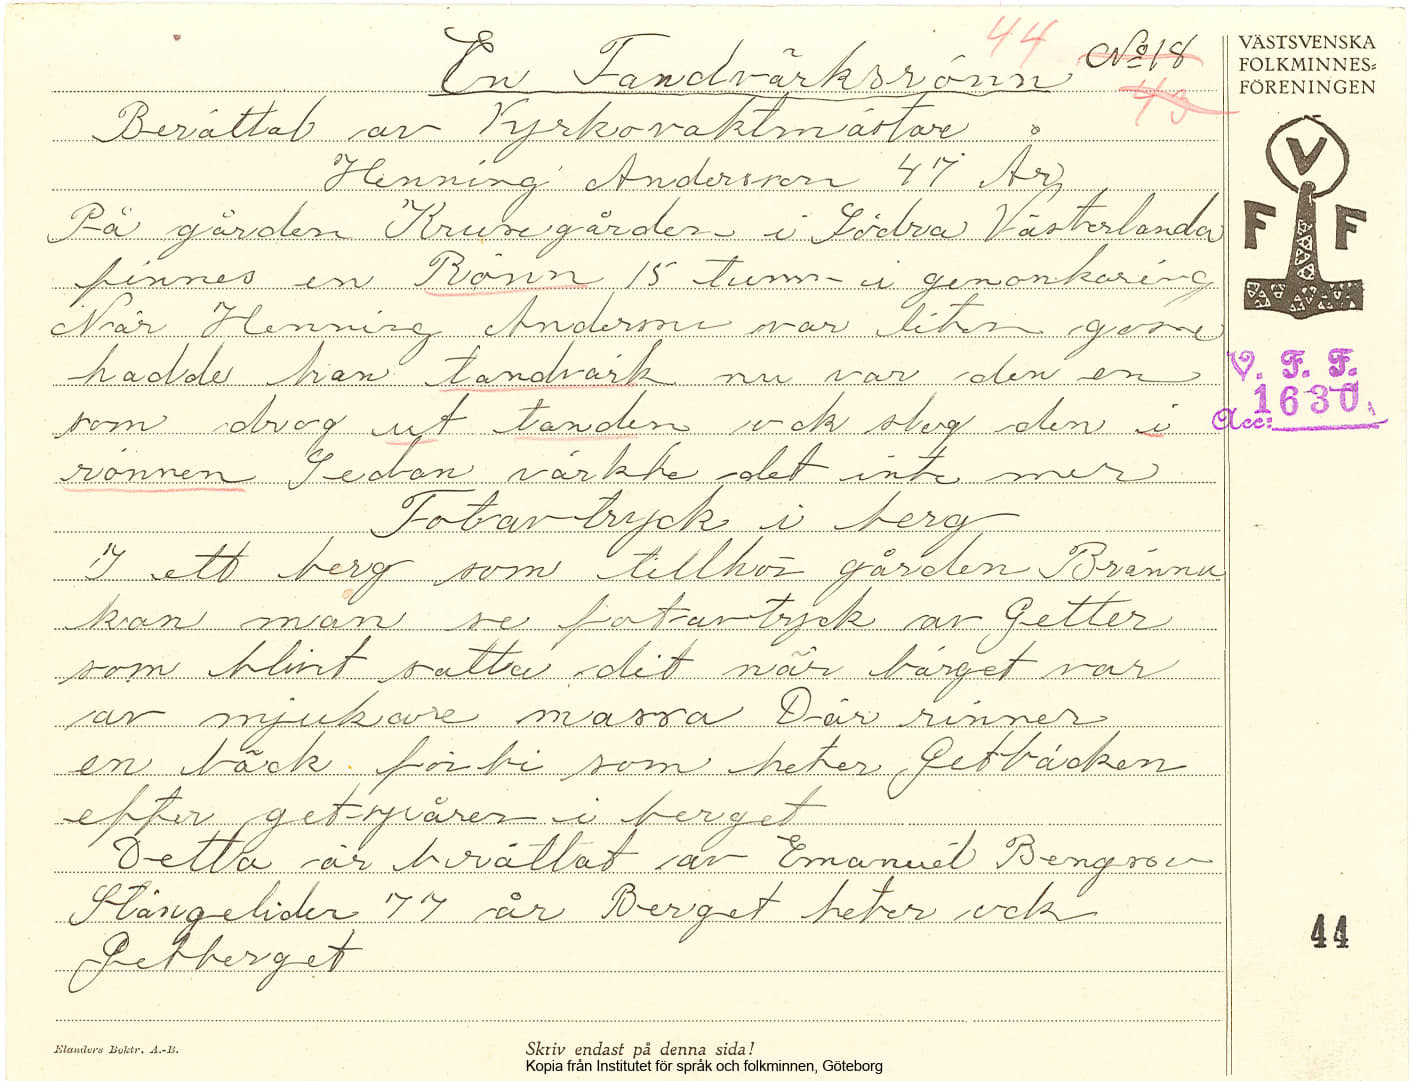 En Tandvärksrönn
44
No 18
43
Berättat av Kyrkovaktmästare
Henning Anderson 47 År
På gården Krusegården i Södra Västerlanda
finnes en Rönn 15 tum i genomkaring
När Henning Anderson var liten gosse
hadde han tandvärk nu var den en
som drog ut tanden ock slog den i
rönnen Sedan värkte det inte mer
Fotavtryck i berg
I ett berg som tillhör gården Bränna
kan man se fotavtryck av Getter
som blivit satta dit när bärget var
av mjukare massa Där rinner
en bäck förbi som heter Getbäcken
efter getspåren i berget
Detta är berättat av Emanuel Bengson
Stängelider 77 år Berget heter ock
Getberget
VÄSTSVENSKA
FOLKMINNES=
FÖRENINGEN
V
F F
V. F. F.
Acc: 1630
44
Elanders Boktr. A.-B.
Skriv endast på denna sida!
Kopia från Institutet för språk och folkminnen, Göteborg